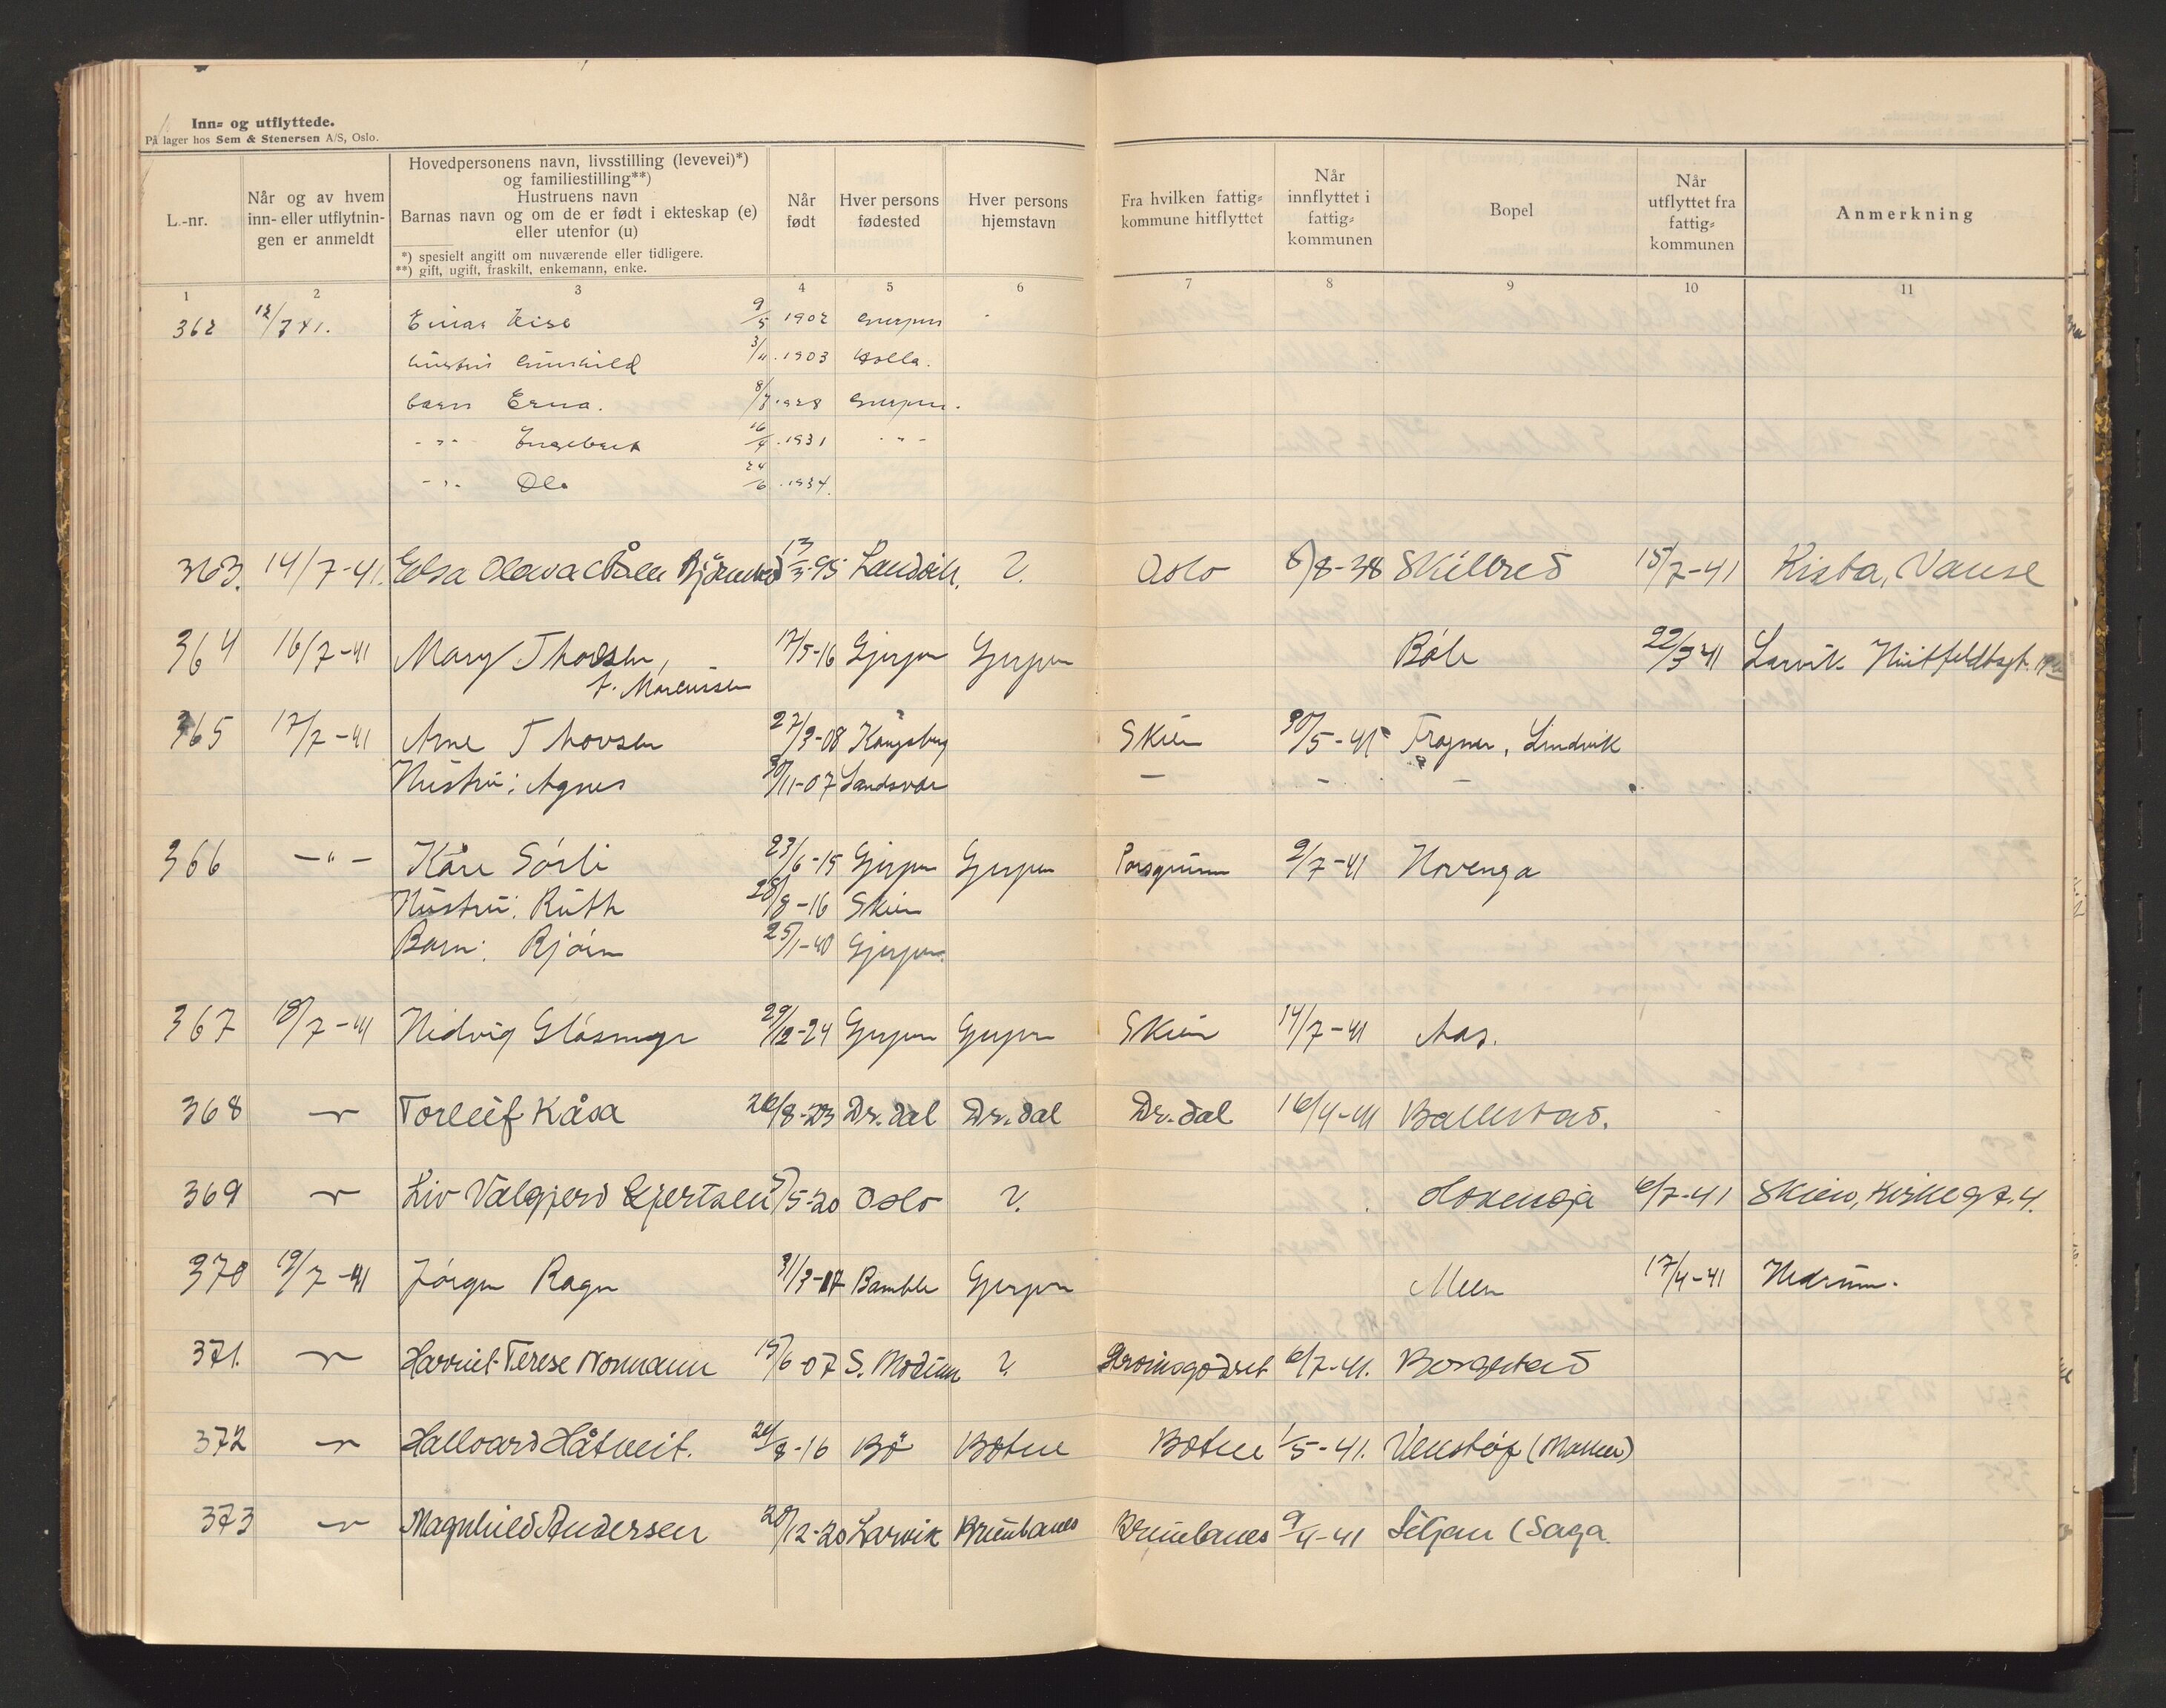 Inn- og utflyttede.
På lager hos Sem & Stenersen A/S, Oslo.
L.-nr.
Når og av hvem
inn- eller utflytnin-
gen er anmeldt
Hovedpersonens navn, livsstilling (levevei)*)
og familiestilling**)
Hustruens navn
Barnas navn og om de er født i ekteskap (e)
eller utenfor (u)
*) spesielt angitt om nuværende eller tidligere.
**) gift, ugift, fraskilt, enkemann, enke.
Når
født
Hver persons
fødested
Hver persons
hjemstavn
Fra hvilken fattig-
kommune hitflyttet
Når
innflyttet i
fattig-
kommunen
Bopel
Når
utflyttet fra
fattig-
kommunen
Anmerkning
1 2 3 4 5 6 7 8 9 10 11
362 12/7 41. Einar 9/5 1902 Gjerpen
hustru Gunhild 3/11. 1903 Holla.
barn Erna. 8/7 1928 Gjerpen.
-"- Engebret 16/4. 1931 -"-
-"- Ola 24/6. 1934.
363. 14/7-41. Elsa Olava 13/3-95 Landvik. ?. Oslo 6/8-38 Skilbred 15/7-41 Kista, Vanse
364 16/7-41 Mary Thorsen, 17/5-16 Gjerpen Gjerpen Böle 22/3 41 Larvik Huitfeldtsgt.
f. Marcussen
365 17/7-41 Arne Thorsen 27/3-08 Kongsberg Skien 30/5-41 Frogner, Lundvik
Hustru: Agnes 30/11-07 Sandsvær - - -
366 -"- Kåre Sörli 23/6-15 Gjerpen Gjerpen Porsgrunn 2/7-41 Hovenga
Hustru: Ruth 28/8-16 Skien
Barn: Björn 25/1-40 Gjerpen.
367 18/7-41 Hedvig Glåsmyr 29/12-24 Gjerpen Gjerpen Skien 14/7-41 Aas.
368 -"- Torleif Kåsa 26/8-23 Dr.dal Dr.dal Dr.dal 16/4-41 Ballestad.
369 -"- Liv Valgjerd Gjertsen 5/5-20 Oslo ?. Hovenga 6/7-41 Skien, Kirkegt. 4.
370 19/7-41 Jörgen Ragn 31/3-17 Bamble Gjerpen Meen 17/4-41 Hedrum.
371. -"- Harriet Terese Normann 15/6-07 S. Modum ? Strömsgodset 6/7-41. Borgestad
372 -"- Hallvard Håtveit. 24/8-16 Bö Botne Botne 1/5-41. Venstöp
373 -"- Magnhild Andersen 28/12-20 Larvik Brunlanes Brunlanes 9/4-41 Siljan (Saga